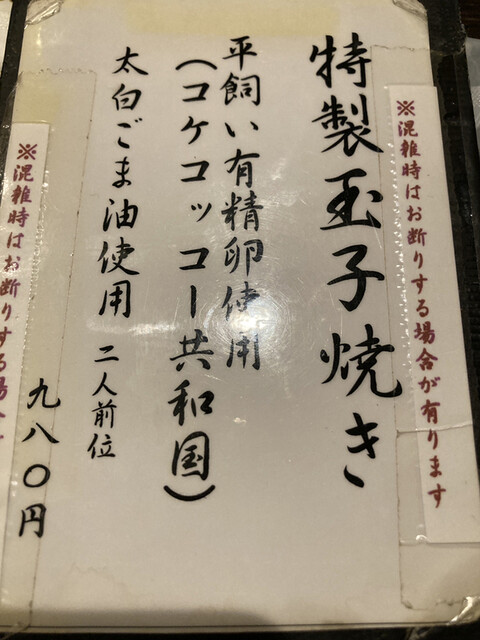 ※混雑時はお断りする場合が有ります
特製玉子焼き
平飼い有精卵使用
(コケコッコー共和国)
太白ごま油使用 二人前位
九八〇円
※混雑時はお断りする場合